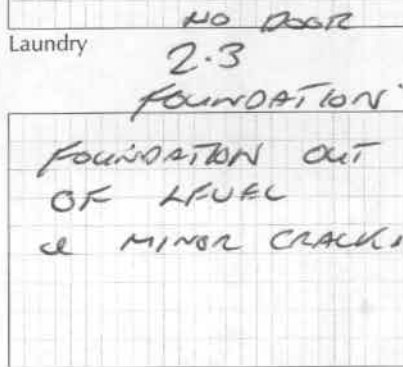 NO DOOR
Laundry
2.3
FOUNDATION
FOUNDATION OUT
OF LEVEL
& MINOR CRACKS